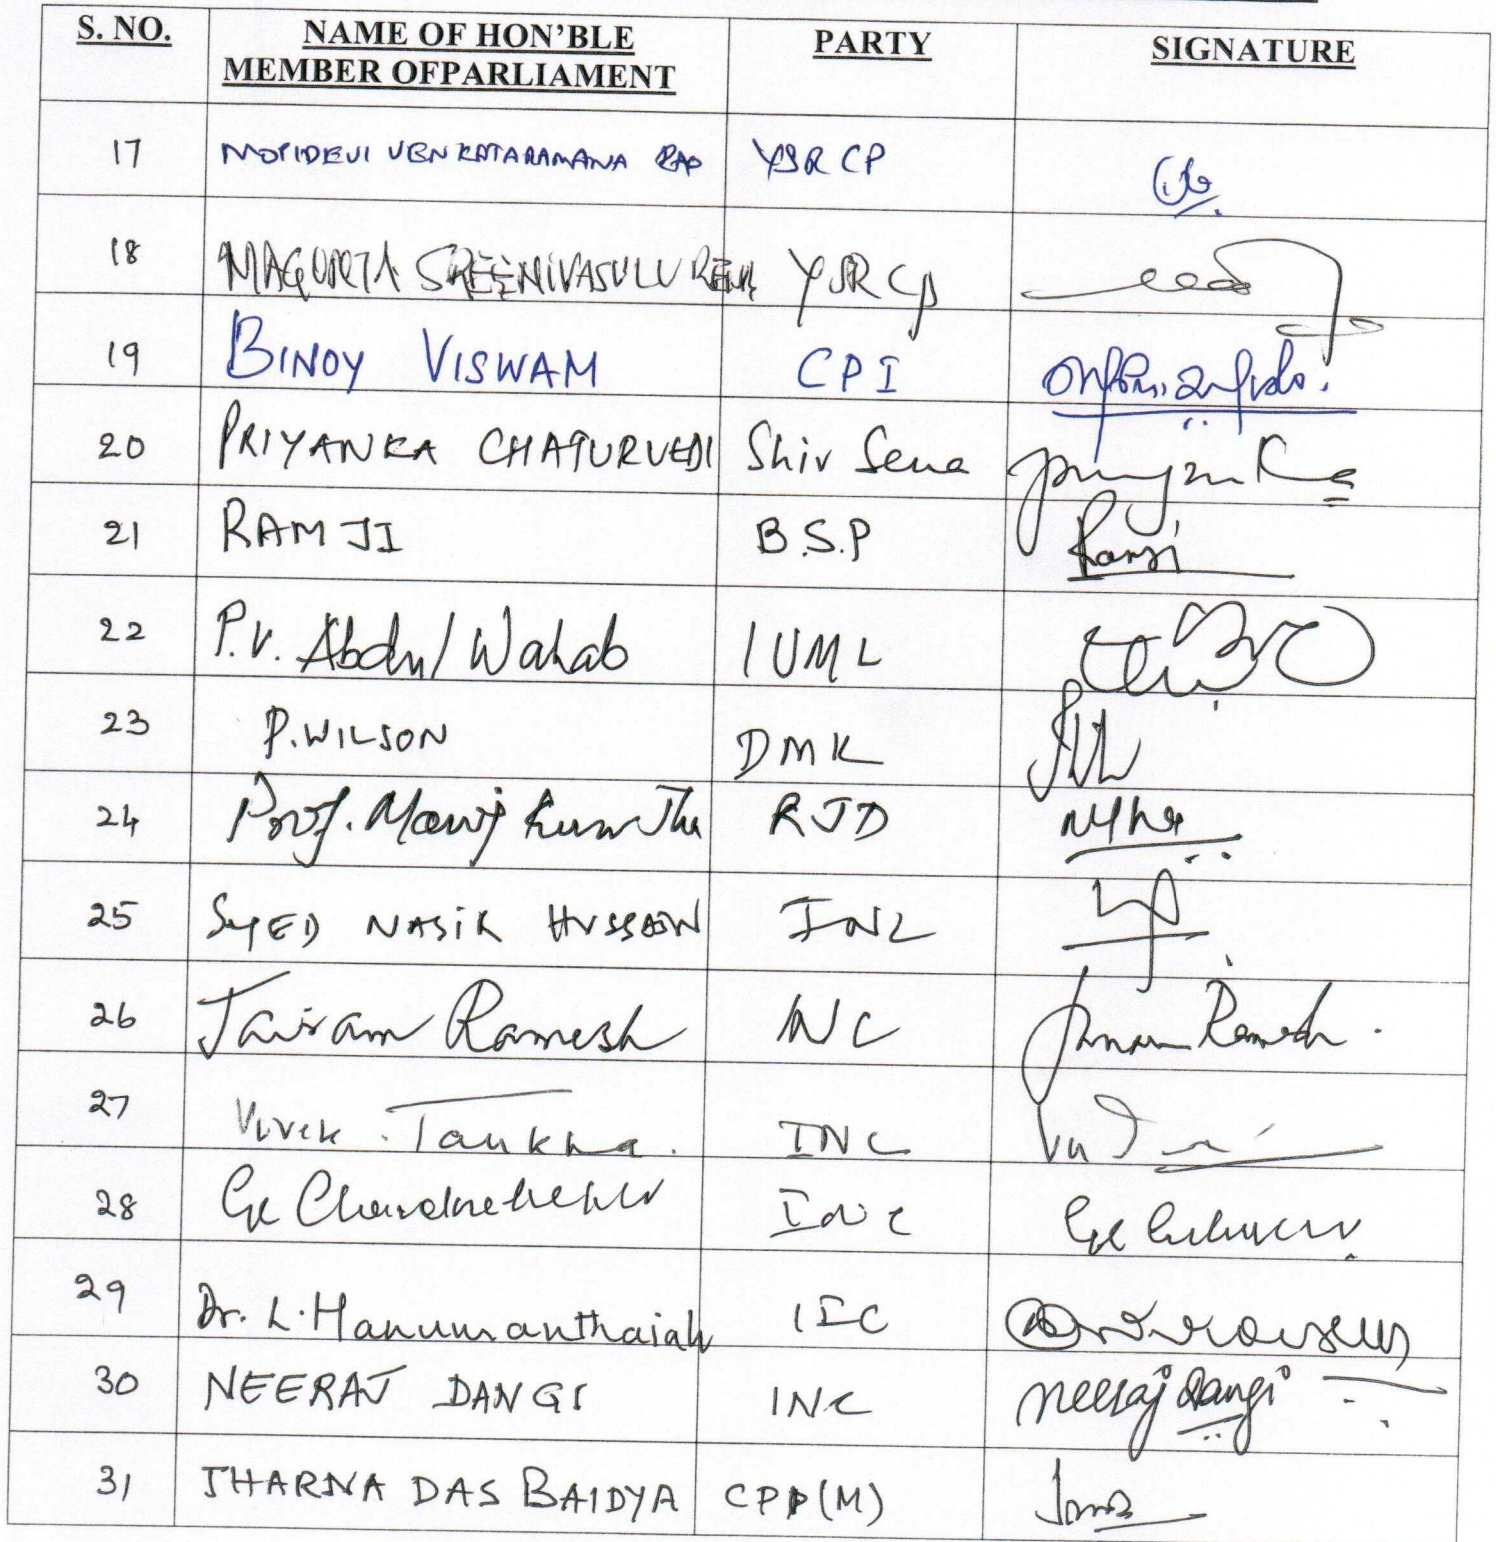 S. NO. NAME OF HON'BLE MEMBER OFPARLIAMENT PARTY SIGNATURE
17 MOPIDEVI VENKATARAMANA RAO YSR CP
18 MAGUNTA SREENIVASULU REDDY YSR CP
19 BINOY VISWAM CPI
20 PRIYANKA CHATURVEDI Shiv Sena Priyanka
21 RAMJI B.S.P Ramji
22 P.V. Abdul Wahab IUML
23 P.WILSON DMK
24 Prof. Manoj Kumar Jha RJD
25 SYED NASIR HUSSAIN INC
26 Jairam Ramesh INC Jairam Ramesh.
27 Vivek. Tankha. INC
28 GC Chandrashekhar INC
29 Dr. L. Hanumanthaiah
30 NEERAJ DANGI INC Neeraj Dangi
31 JHARNA DAS BAIDYA CPI(M)